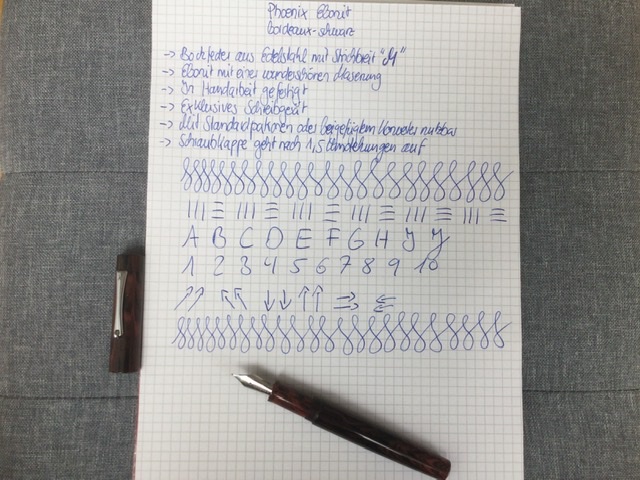 Phoenix Ebonit
bordeaux-schwarz
-> Bockfeder aus Edelstahl mit Strichbreit "M"
-> Ebonit mit einer wunderschönen Maserung
-> In Handarbeit gefertigt
-> Exklusives Schreibgerät
-> Mit Standardpatronen oder beigefügtem Konverter nutzbar
-> Schraubkappe geht nach 1,5 Umdrehungen auf
A B C D E F G H I J
1 2 3 4 5 6 7 8 9 10